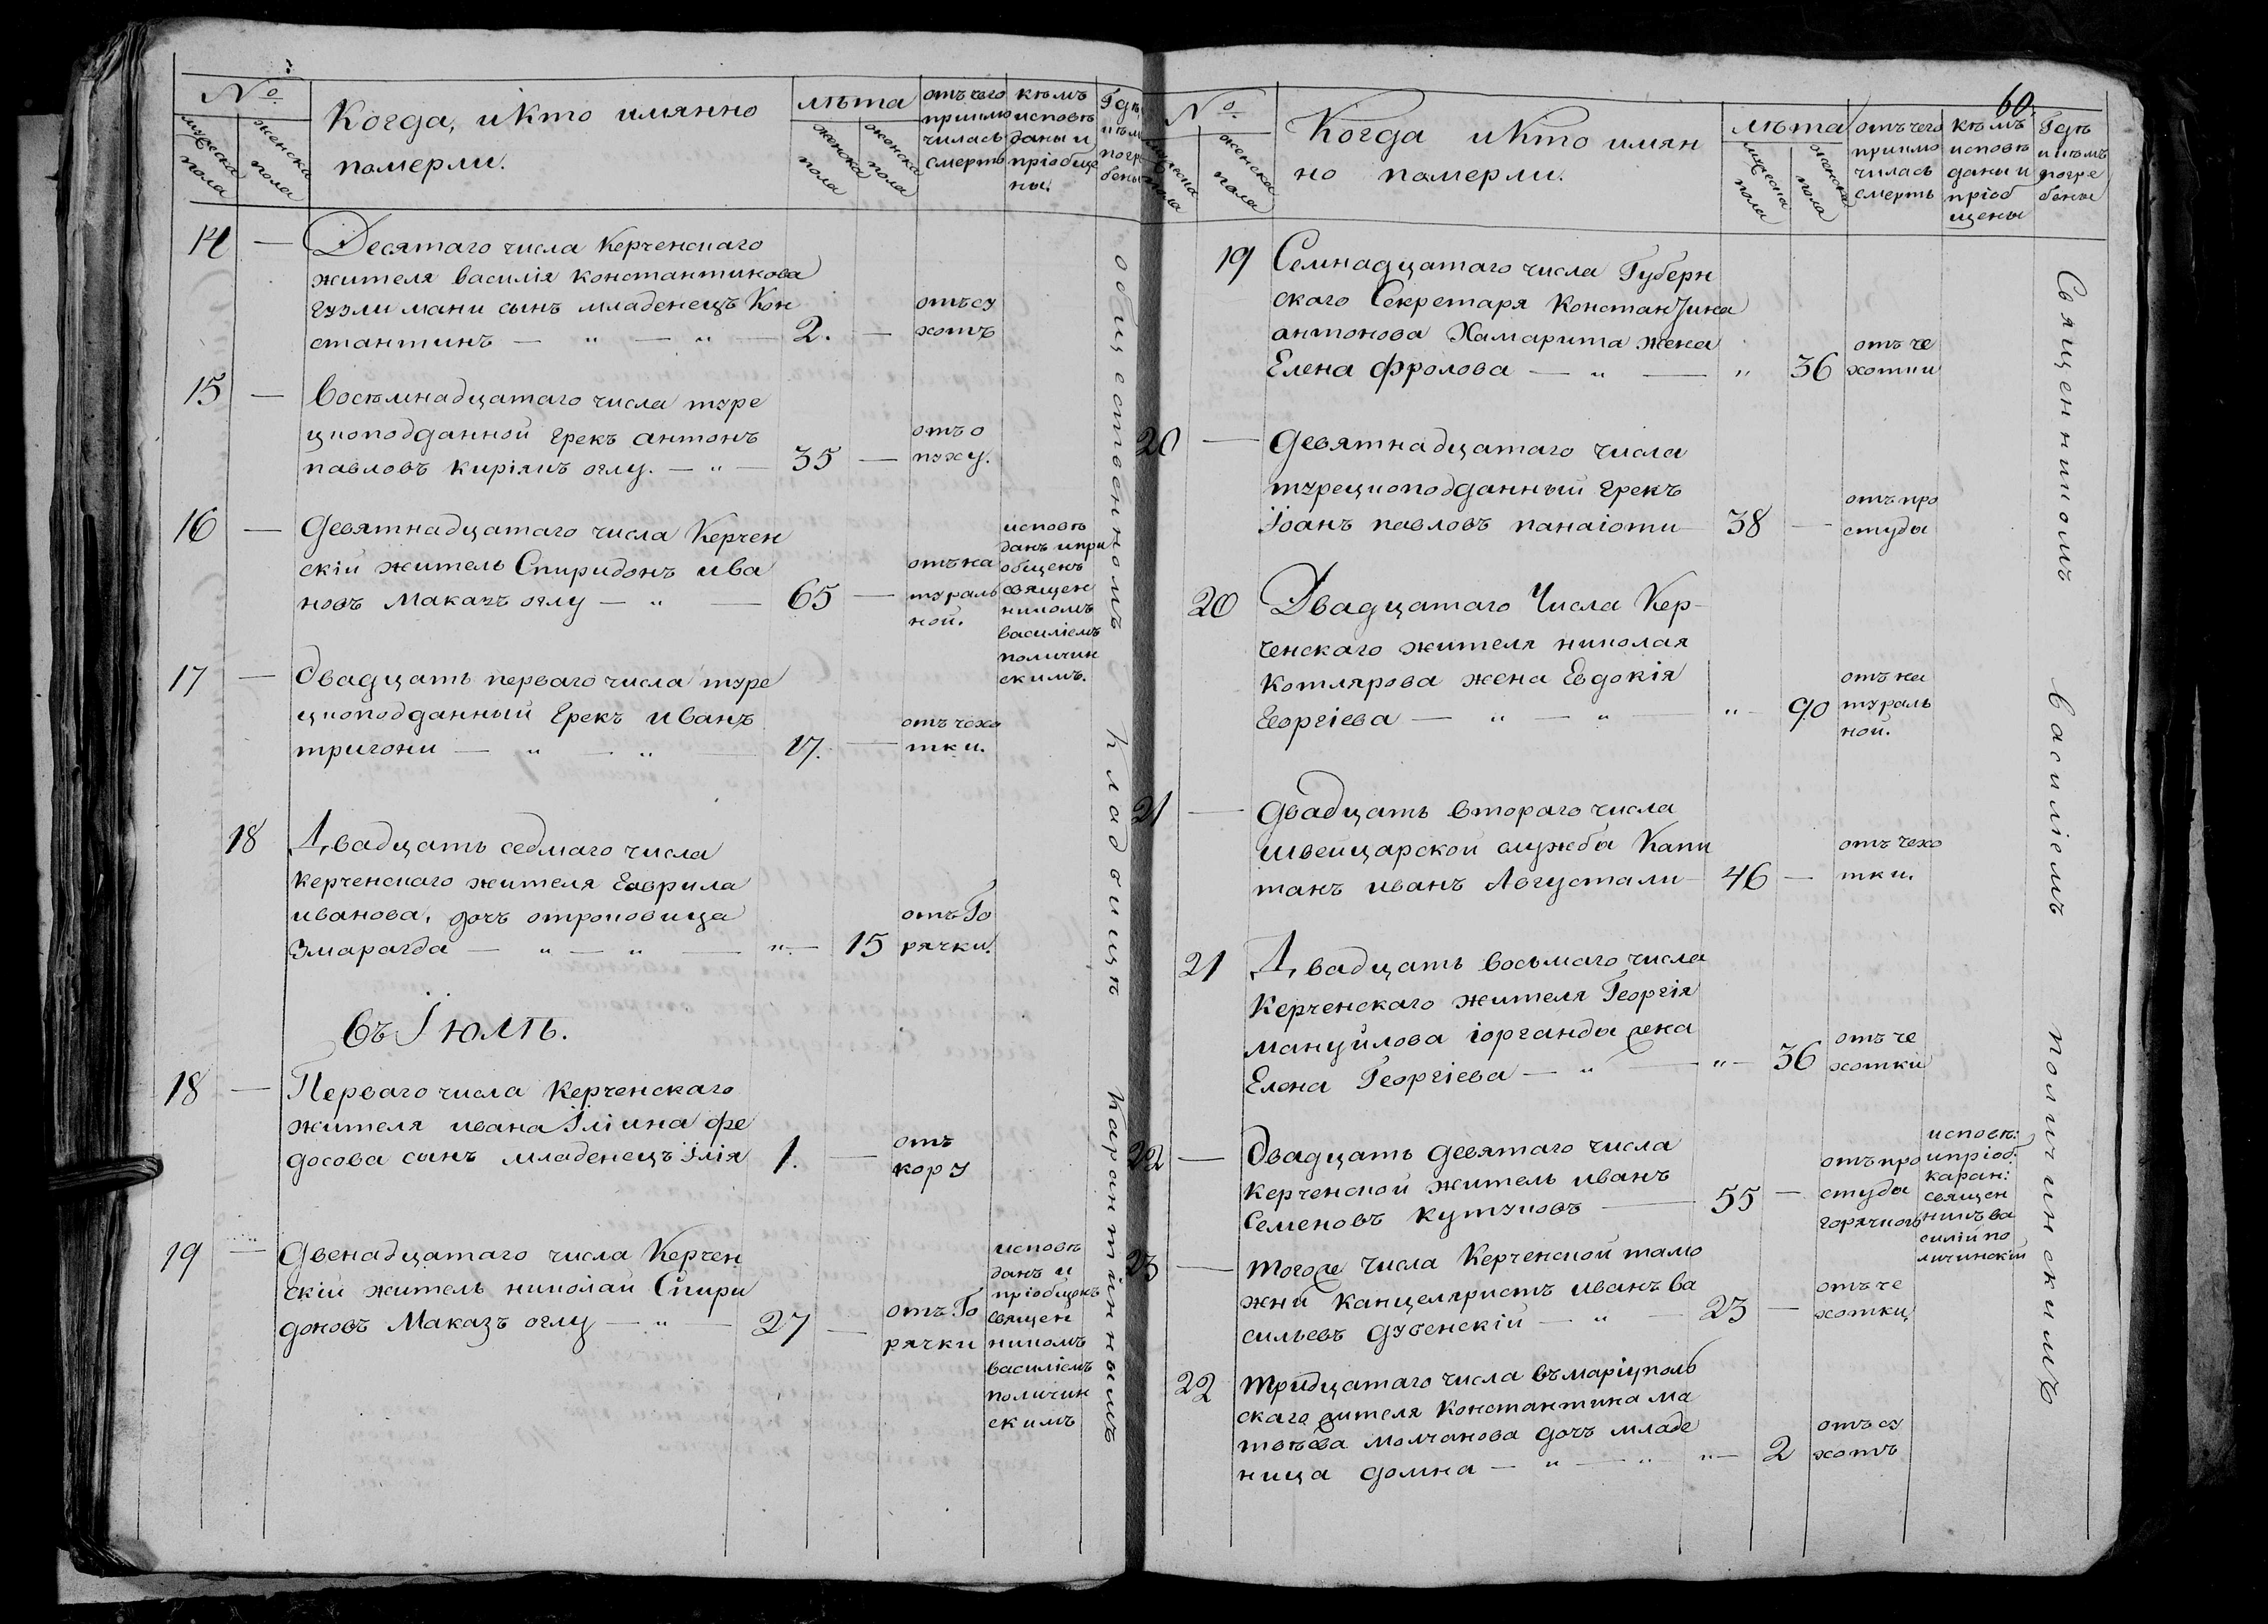 №
мужеска пола
женска пола
Когда, и кто имянно
померли.
лѣта
женска пола
женска пола
отъ чего
приклю
чилась
смерть
кѣмъ
исповѣ
даны и
пріобще
ны.
Гдѣ,
и кѣм
погре
бены
14 — Десятаго числа Керченскаго
жителя василія константинова
гузлимани сынъ младенецъ Кон
стантинъ — " — " — 2. —
отъ су
хотъ
15 — Восѣмнадцатаго числа туре
цкоподданной грекъ антонъ
павловъ киріякъ оглу. — " — 35 —
отъ о
пуху.
16 — Девятнадцатаго числа Керчен
скій житель Спиридонъ ива
новъ Маказъ оглу — " — 65 —
отъ на
тураль
ной.
исповѣ
данъ и прі
общенъ
священ
никомъ
василіемъ
поличин
скимъ.
17 — Двадцать перваго числа туре
цкоподданный Грекъ иванъ
тригони — " — " — 17. —
отъ чехо
тки.
18 Двадцать седмаго числа
керченскаго жителя Гаврила
иванова, дочъ отроковица
Змарагда — " — " — " — 15
отъ Го
рячки.
Въ Іюлѣ.
18 — Перваго числа Керченскаго
жителя ивана Іліина фе
досова сынъ младенецъ Ілія 1. —
отъ
кору
19 — Двенадцатаго числа Керчен
скій житель николай Спири
доновъ Маказъ оглу — " — 27 —
отъ Го
рячки
исповѣ
данъ и
пріобщенъ
священ
никомъ
василіемъ
поличин
скимъ
общественномъ кладбищѣ карантийннымъ
60.
№
мужеска пола
женска пола
Когда и кто имян
но померли.
лѣта
мужеска пола
женска пола
отъ чего
приклю
чилась
смерть
кѣмъ
исповѣ
даны и
пріоб
щены
Гдѣ
и кѣмъ
погре
бены
19 Семнадцатаго числа Губерн
скаго Секретаря Константина
антонова Хамарита жена
Елена Фролова — " — " 36
отъ че
хотки
20 — Девятнадцатаго числа
турецкоподданный грекъ
Іоанъ павловъ панаіоти — 38 —
отъ про
студы
20 Двадцатаго Числа Кер-
ченскаго жителя николая
Котлярова жена Евдокія
Георгіева — " — " " — 90
отъ на
тураль
ной.
21 — Двадцать втораго числа
швейцарской службы Капи
танъ иванъ Августали — 46 —
отъ чехо
тки.
21 Двадцать восьмаго числа
Керченскаго жителя Георгія
мануйлова іорганды жена
Елена Георгіева — " — " — 36
отъ че
хотки
22 — Двадцать девятаго числа
Керченской житель иванъ
Семеновъ кутузовъ — 55 —
отъ про
студы
горячкою
исповѣ:
и пріоб:
каран:
священ
никъ ва
силій по
личинскій
23 — Тогоже числа Керченской тамо
жни Канцеляристъ иванъ ва
сильевъ Дубенскій — " — 23 —
отъ че
хотки
22 Тридцатаго числа въ маріуполь
скаго жителя Константина ма
твѣева молчанова дочь младе
ница Домна — " — " " — 2
отъ су
хотъ
Священникомъ василіемъ поличинскимъ